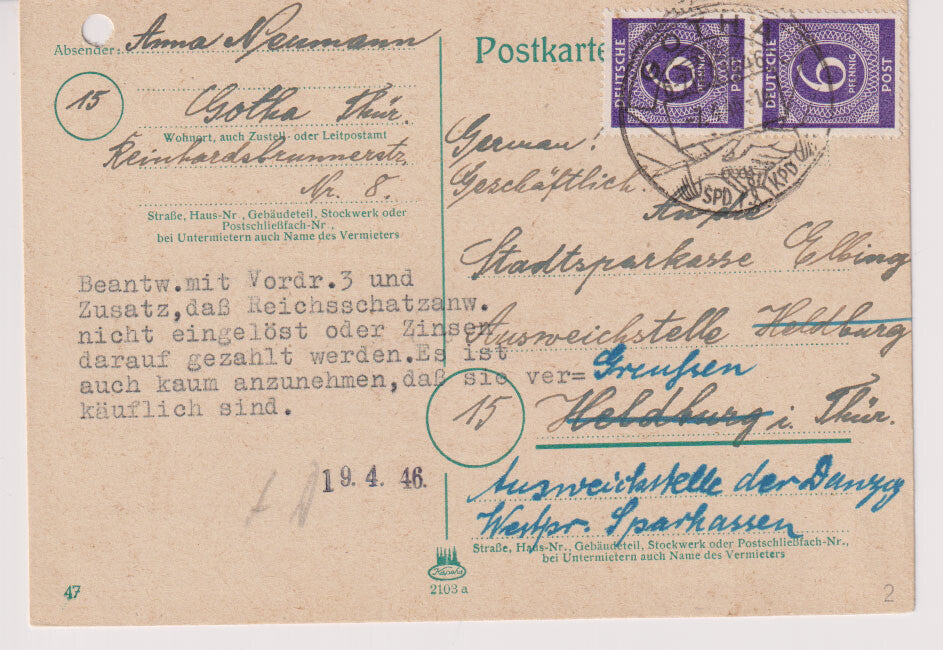 Absender: Anna Neumann
15
Gotha Thür.
Wohnort, auch Zustell- oder Leitpostamt
Reinhardsbrunnerstr.
Nr. 8.
Straße, Haus-Nr., Gebäudeteil, Stockwerk oder
Postschließfach-Nr.,
bei Untermietern auch Name des Vermieters
Beantw.mit Vordr.3 und
Zusatz,daß Reichsschatzanw.
nicht eingelöst oder Zinsen
darauf gezahlt werden.Es ist
auch kaum anzunehmen,daß sie ver=
käuflich sind.
19. 4. 46.
47
Postkarte
DEUTSCHE POST 6 PFENNIG
DEUTSCHE POST 6 PFENNIG
GOTHA
SPD KPD
German!
Geschäftlich.
An die
Stadtsparkasse Elbing
Ausweichstelle Heldburg
Greussen
15
Heldburg i. Thür.
Ausweichstelle der Danzig
Westpr. Sparkassen
Straße, Haus-Nr., Gebäudeteil, Stockwerk oder Postschließfach-Nr.,
bei Untermietern auch Name des Vermieters
2103 a
2